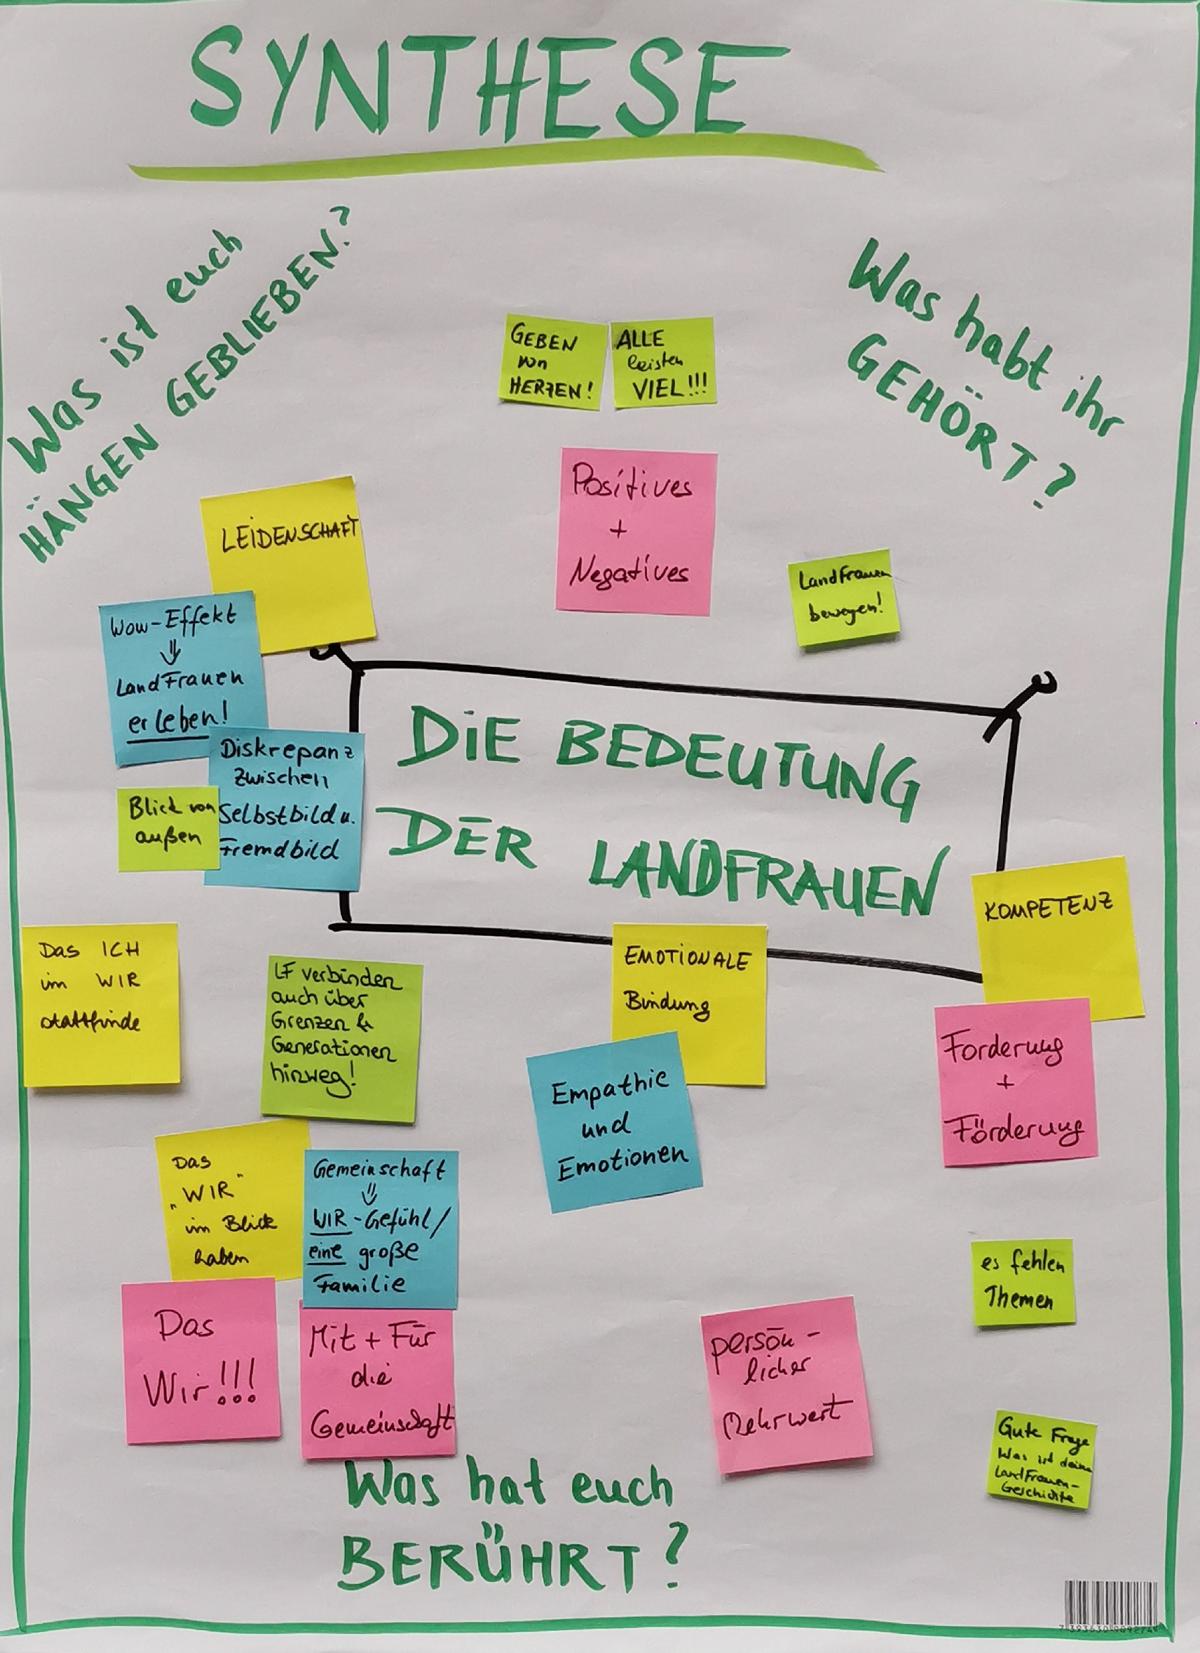 SYNTHESE
Was ist euch
HÄNGEN GEBLIEBEN?
Was habt ihr
GEHÖRT?
GEBEN
von
HERZEN!
ALLE
leisten
VIEL!!!
Positives
+
Negatives
LEIDENSCHAFT
LandFrauen
bewegen!
Wow-Effekt
⇓
LandFrauen
erleben!
Diskrepanz
zwischen
Selbstbild u.
Fremdbild
Blick von
außen
DIE BEDEUTUNG
DER LANDFRAUEN
KOMPETENZ
Das ICH
im WIR
stattfinde
LF verbinden
auch über
Grenzen &
Generationen
hinweg!
EMOTIONALE
Bindung
Empathie
und
Emotionen
Forderung
+
Förderung
Das
„WIR"
im Blick
haben
Gemeinschaft
⇓
WIR-Gefühl/
eine große
Familie
es fehlen
Themen
Das
Wir!!!
Mit + Für
die
Gemeinschaft
persön-
licher
Mehrwert
Gute Frage
Was ist deine
LandFrauen-
Geschichte
Was hat euch
BERÜHRT?